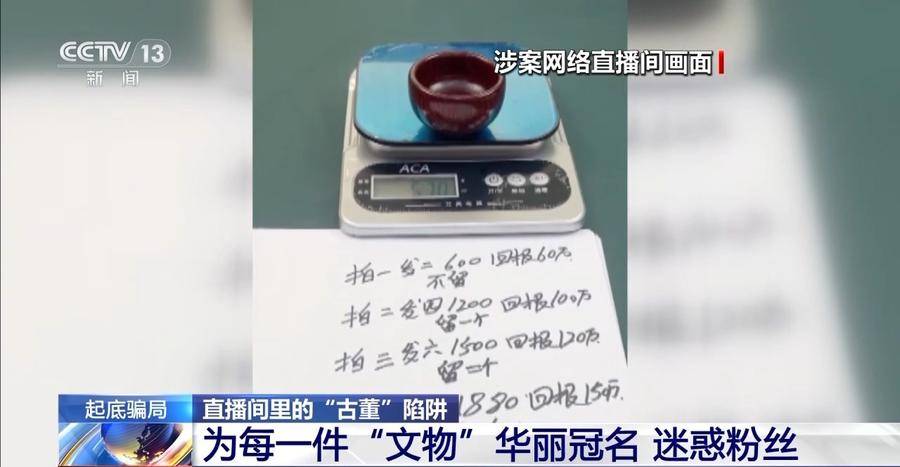 CCTV 13
新闻
涉案网络直播间画面
ACA
拍一发二 600 回报60万
不留
拍二发四 1200 回报100万
留一个
拍三发六 1500 回报120万
留二个
1880 回报15万
起底骗局
直播间里的“古董”陷阱
为每一件“文物”华丽冠名 迷惑粉丝